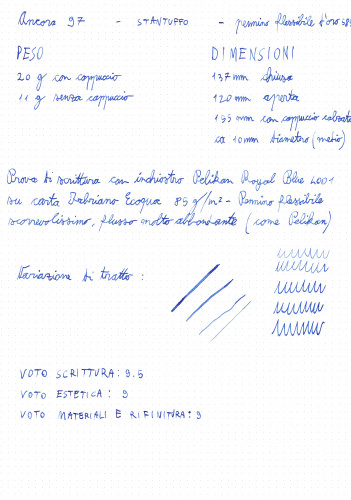 Ancora 97 - STANTUFFO - pennino flessibile d'oro 585
PESO
DIMENSIONI
20 g con cappuccio
137 mm chiusa
11 g senza cappuccio
120 mm aperta
155 mm con cappuccio calzato
ca 10mm diametro (medio)
Prova di scrittura con inchiostro Pelikan Royal Blue 4001
su carta Fabriano Ecoqua 85 g/m2 - Pennino flessibile
scorrevolissimo, flusso molto abbondante (come Pelikan)
Variazione di tratto :
VOTO SCRITTURA: 9.5
VOTO ESTETICA : 9
VOTO MATERIALI E RIFINITURA: 9